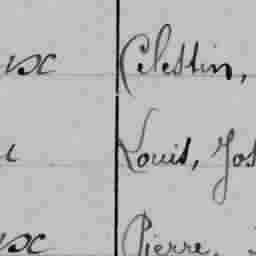 ux Celestin,
Louis, Jos
ux Pierre,